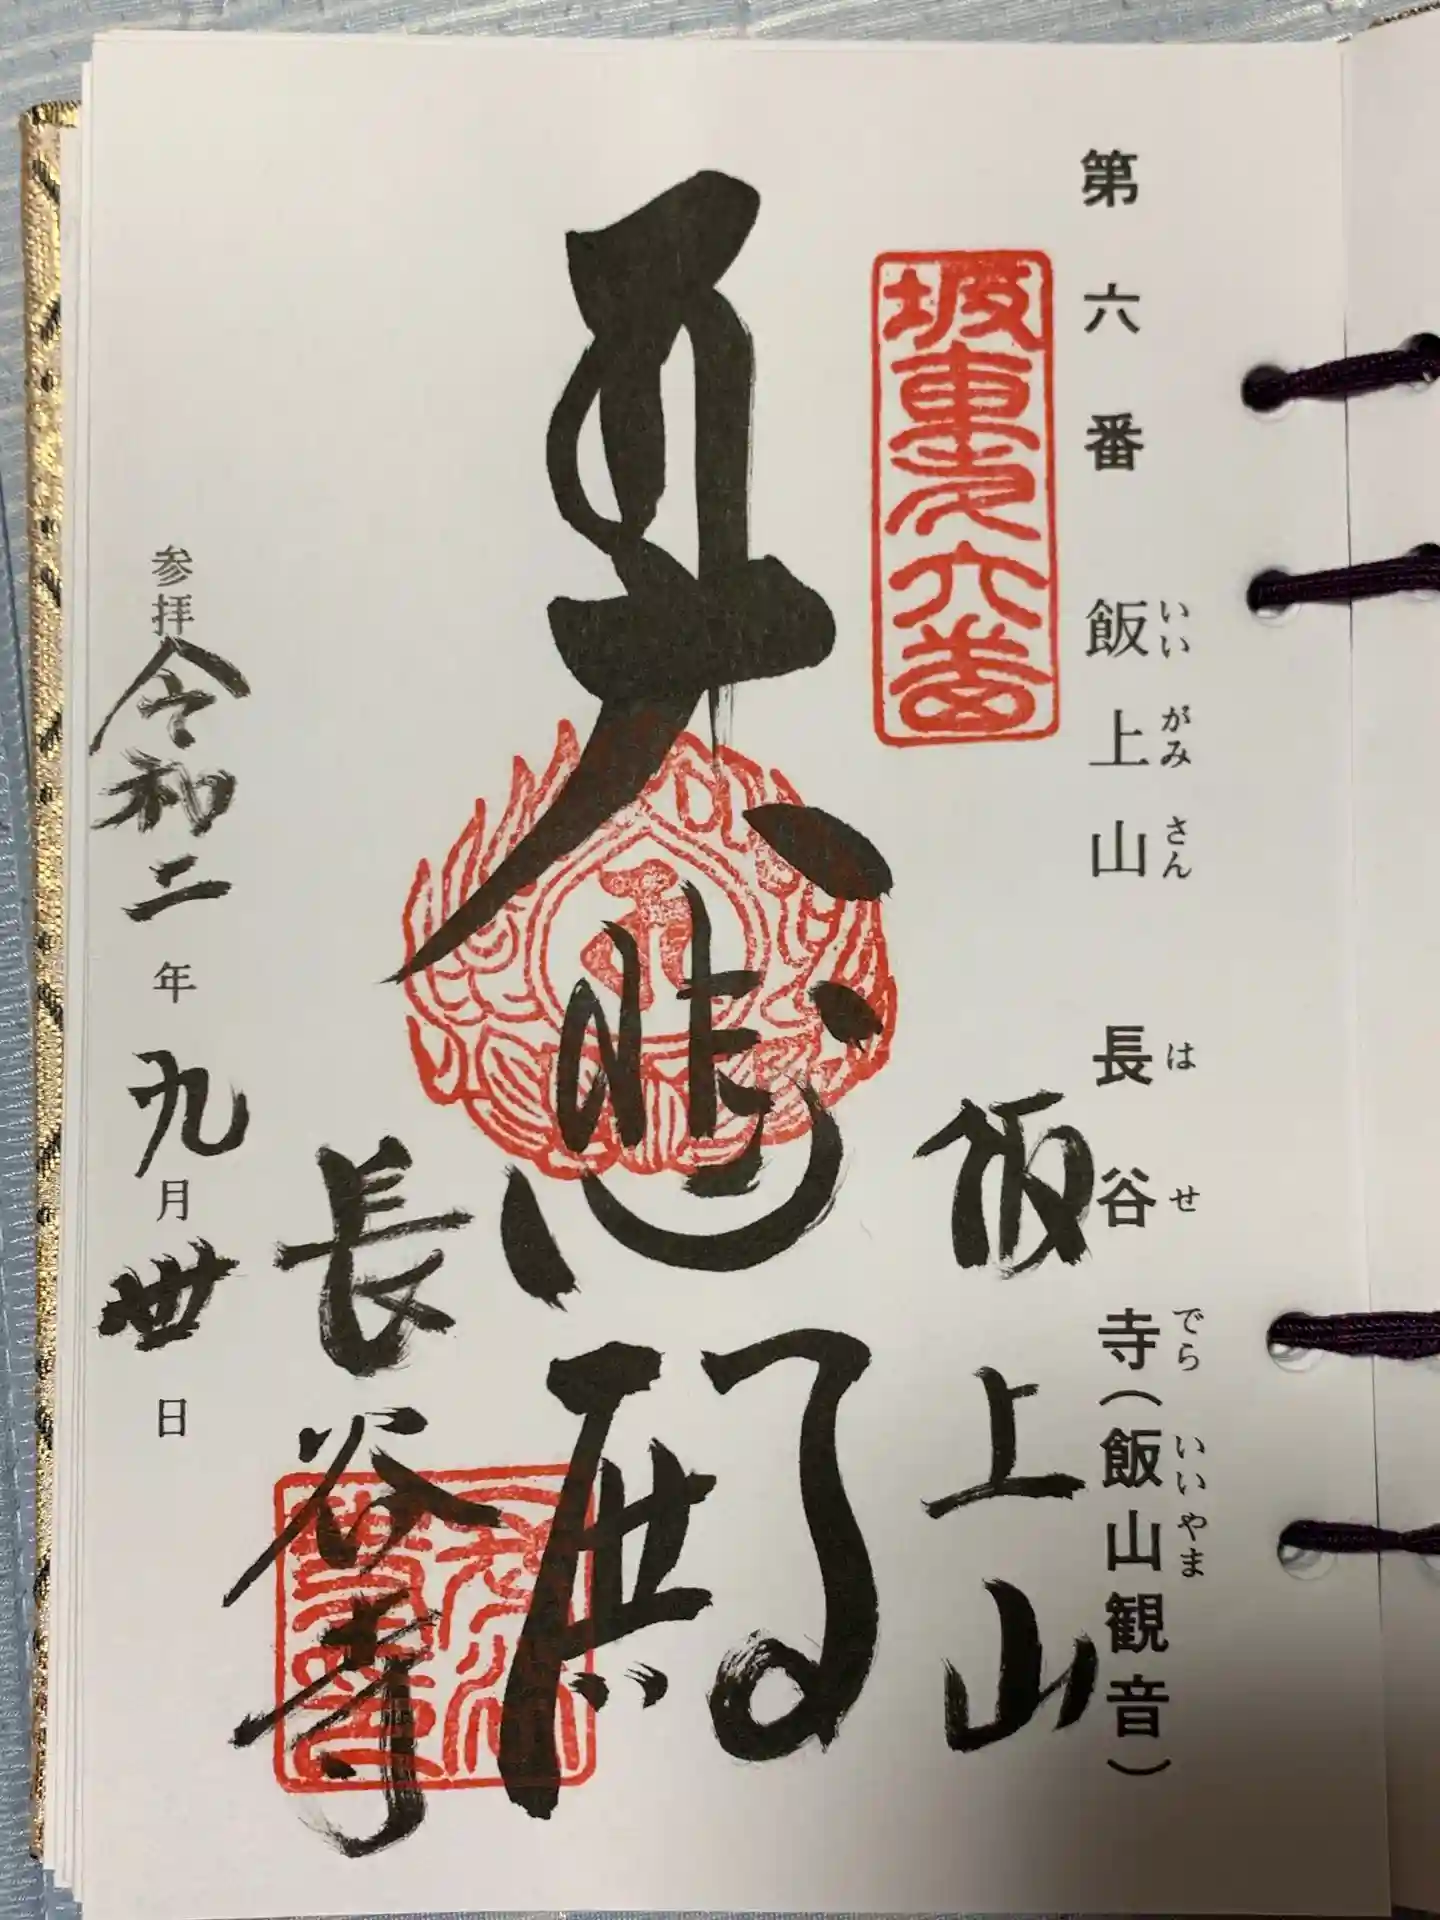 第六番 飯上山 長谷寺(飯山観音)
いいがみさん はせでら いいやま
坂東第六番
飯上山
大悲殿
長谷寺
参拝 令和二年九月卅日